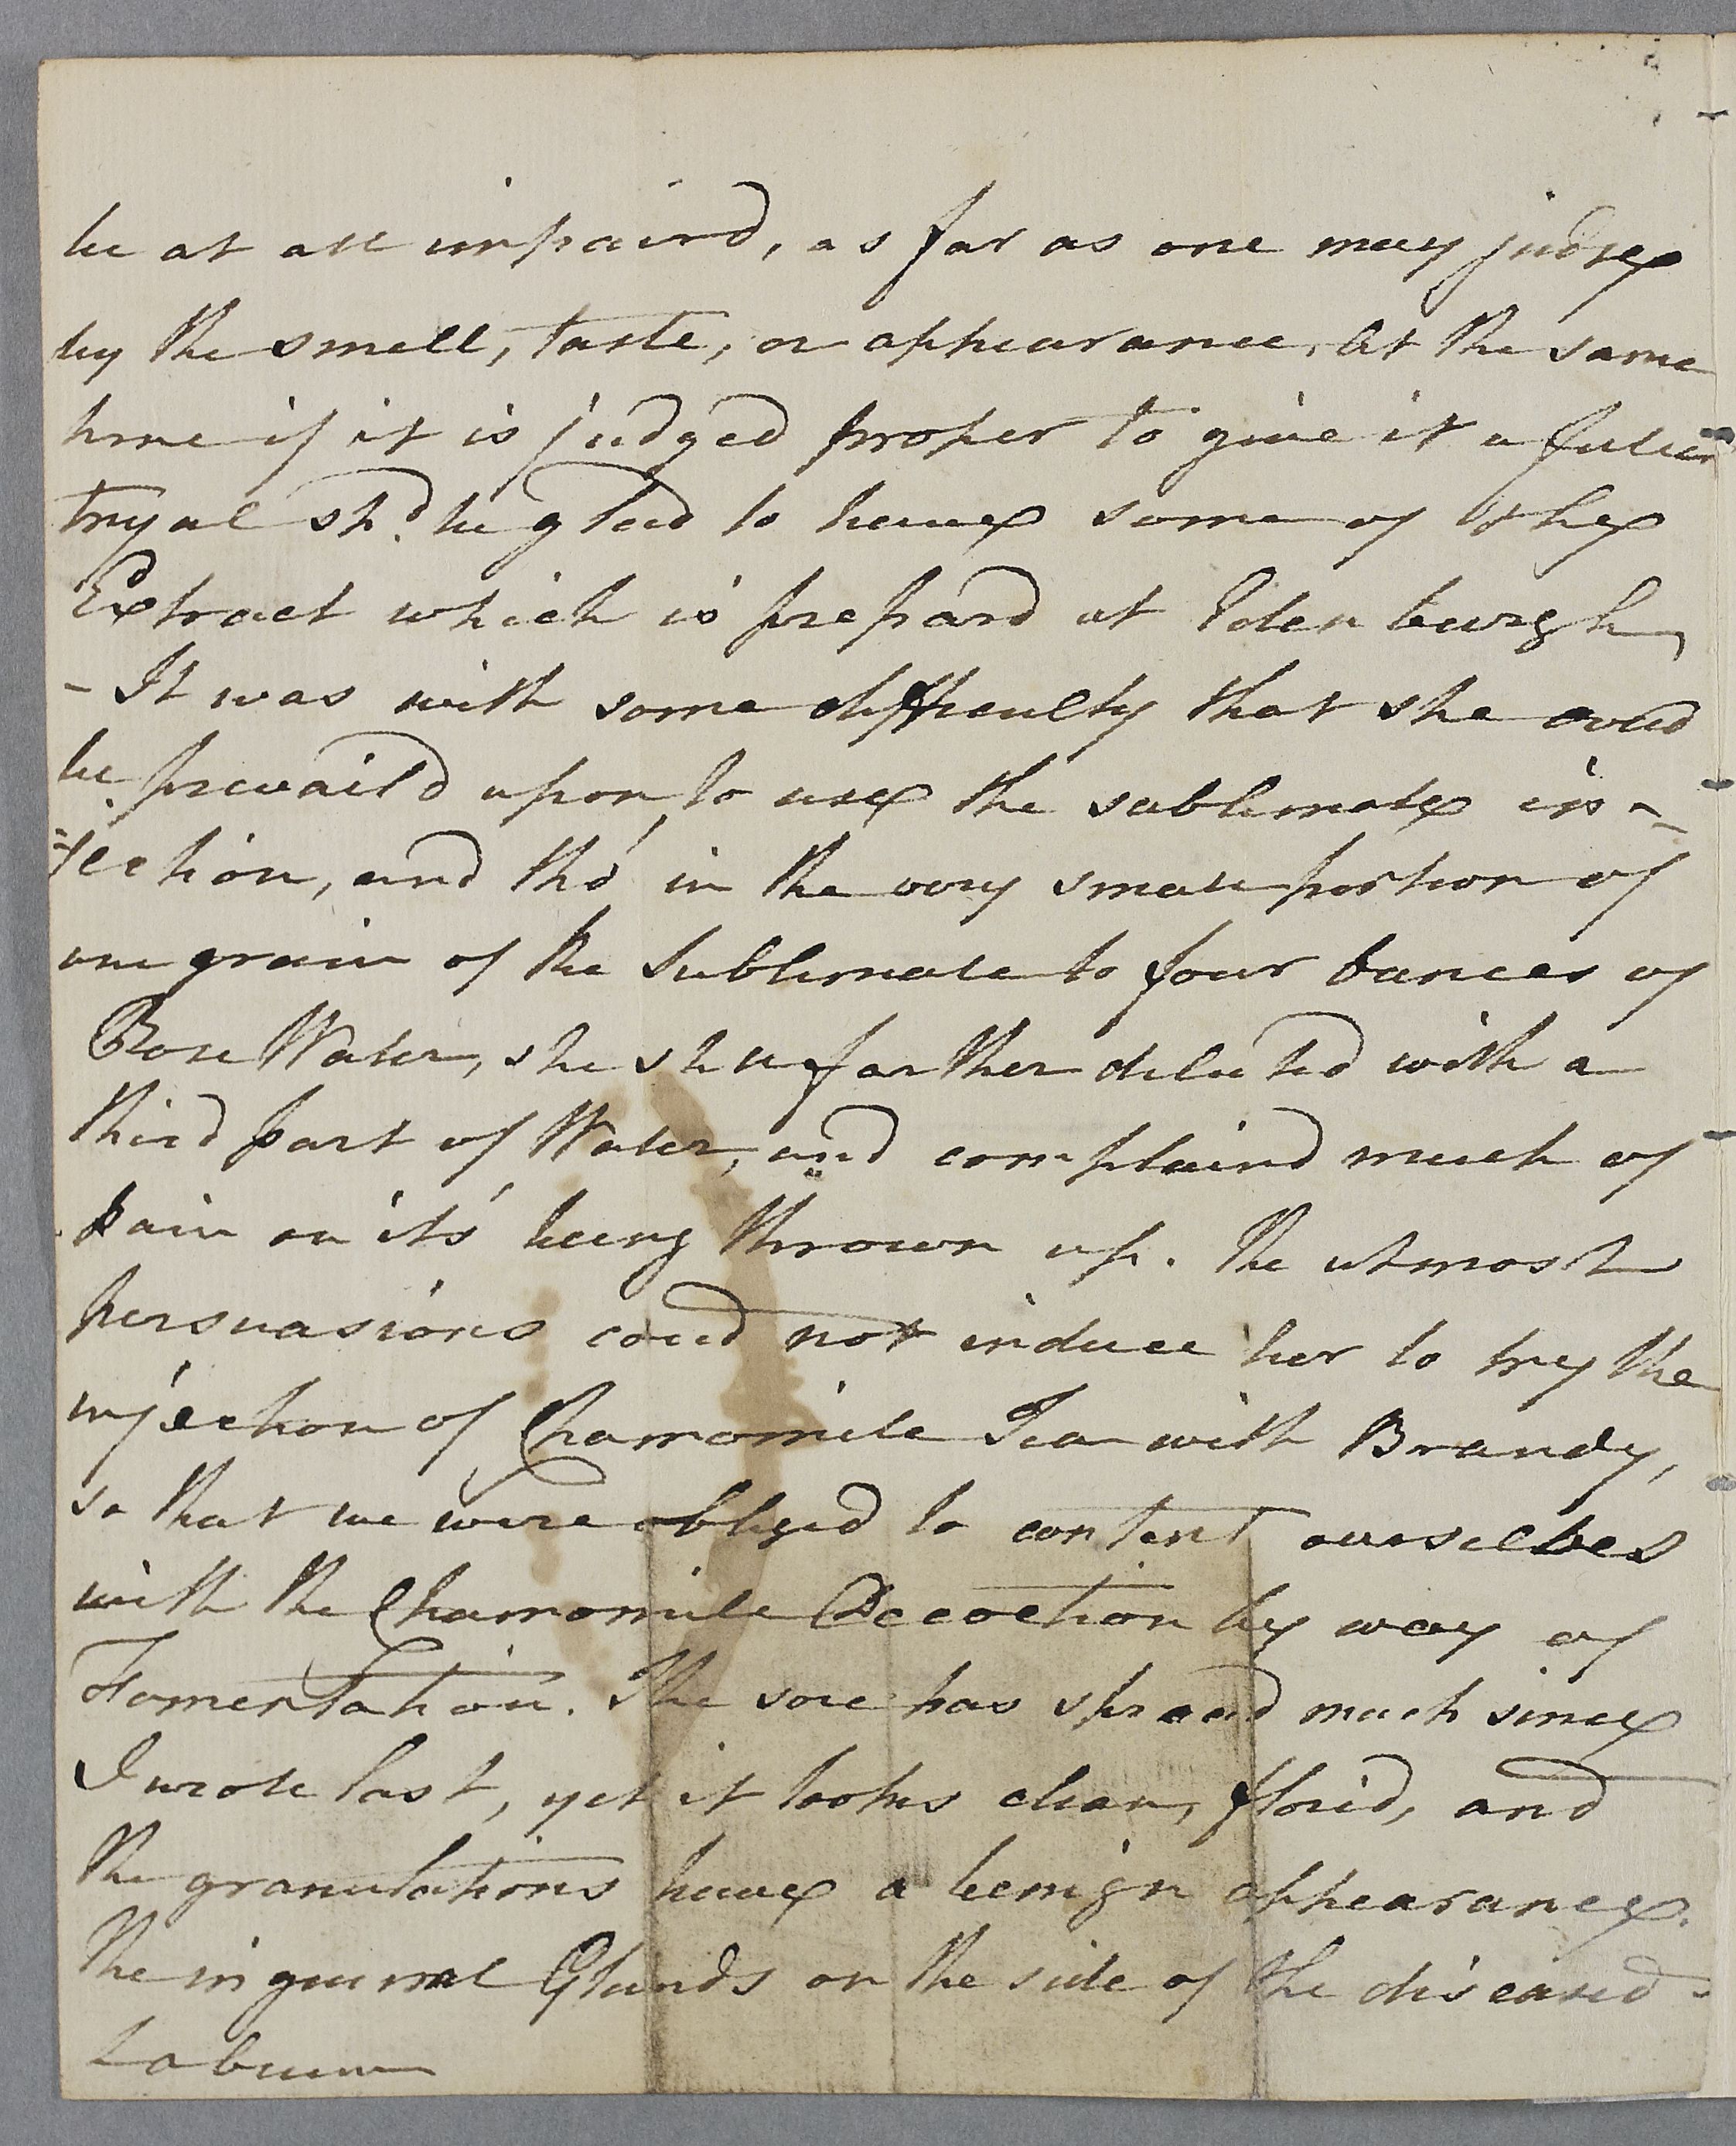 be at all impaird, as far as one may judge
by the smell, taste, or appearance, At the same
time if it is judged proper to give it a fuller
tryal shd. be glad to have some of the
Extract which is prepard at Edenburgh,
- It was with some difficulty that she coud
be prevaild upon to use the sublimate in-
=jection, and tho' in the very small portion of
one grain of the Sublimate to four ounces of
Rose Water, she still farther diluted with a
third part of Water, and complaind much of
pain on its' being thrown up. The utmost
persuasions coud not induce her to try the
injection of Chamomile Tea with Brandy,
so that we were obliged to content ourselves
with the Chamomile Decoction by way of
Fomentation. The sore has spread much since
I wrote last, yet it looks clean, florid, and
the granulations have a benign appearance.
The inguinal Glands on the side of the diseased
Labium